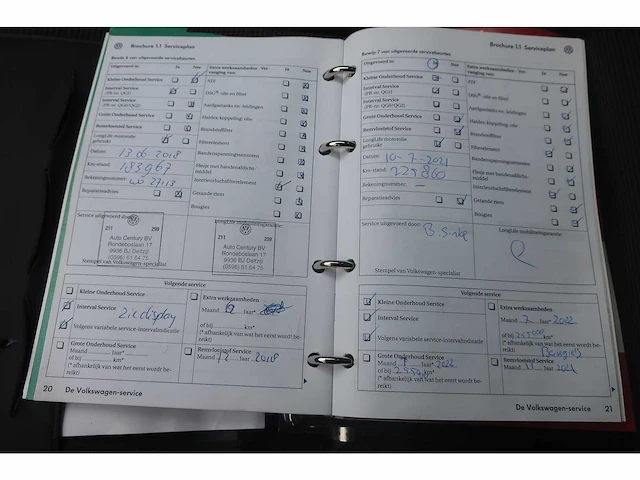 Brochure 1.1 Serviceplan
Uitgevoerd is:
Ja
Nee
Extra werkzaamheden - Ver-
vanging van:
Ja
Nee
Kleine Onderhoud Service
Interval Service
(PR-nr. QG1)
Interval Service
(PR-nr. QG0/QG2)
Grote Onderhoud Service
Remvloeistof Service
LongLife motorolie
gebruikt
Datum:
13-06-2018
Km-stand:
183967
Rekeningnummer:
wo 27113
Reparatieadvies
DSG®-olie en filter
Aardgastanks en -leidingen
Haldex-koppeling; olie
Brandstoffilter
Filterelement
Bandenspanningssysteem
Flesje met bandenafdicht-
middel
Interieurluchtfilterelement
Getande riem
Bougies
Service uitgevoerd door:
LongLife mobiliteitsgarantie:
211
299
Auto Century BV
Rondeboslaan 17
9936 BJ Delfzijl
(0596) 61 64 75
211
299
Auto Century BV
Rondeboslaan 17
9936 BJ Delfzijl
(0596) 61 64 75
Stempel van Volkswagen-specialist
Volgende service
Kleine Onderhoud Service
Interval Service
Zie display
Volgens variabele service-intervalindicatie
Grote Onderhoud Service
Maand
Jaar*
of bij
km*
(* afhankelijk van wat het eerst wordt be-
reikt)
Extra werkzaamheden
Maand
Jaar*
of bij
km*
(* afhankelijk van wat het eerst wordt be-
reikt)
Remvloeistof Service
Maand
Jaar 2018
20
De Volkswagen-service
Brochure 1.1 Serviceplan
Bewijs 7 van uitgevoerde servicebeurten
Uitgevoerd is:
Ja
Nee
Extra werkzaamheden - Ver-
vanging van:
Ja
Nee
Kleine Onderhoud Service
Interval Service
(PR-nr. QG1)
Interval Service
(PR-nr. QG0/QG2)
Grote Onderhoud Service
Remvloeistof Service
LongLife motorolie
gebruikt
Datum:
10-7-2021
Km-stand:
225860
Rekeningnummer:
Reparatieadvies
DSG®-olie en filter
Aardgastanks en -leidingen
Haldex-koppeling; olie
Brandstoffilter
Filterelement
Bandenspanningssysteem
Flesje met bandenafdicht-
middel
Interieurluchtfilterelement
Getande riem
Bougies
Service uitgevoerd door:
LongLife mobiliteitsgarantie:
Stempel van Volkswagen-specialist
Volgende service
Kleine Onderhoud Service
Interval Service
Volgens variabele service-intervalindicatie
Grote Onderhoud Service
Maand
Jaar* 2022
of bij
km*
(* afhankelijk van wat het eerst wordt be-
reikt)
Extra werkzaamheden
Maand
Jaar* 2022
of bij
km*
(* afhankelijk van wat het eerst wordt be-
reikt)
Bougies
Remvloeistof Service
Maand 11 Jaar 2021
De Volkswagen-service
21